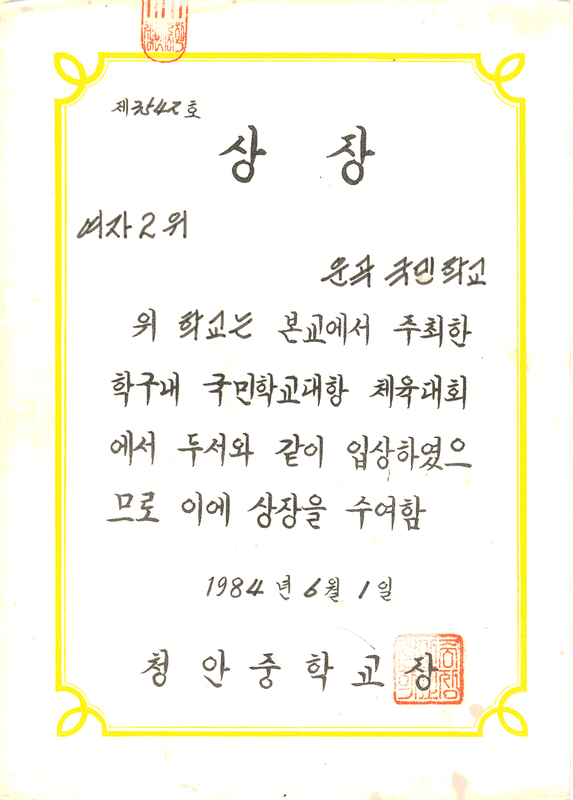 제3542호
상 장
여자 2위
운곡 국민학교
위 학교는 본교에서 주최한
학구내 국민학교대항 체육대회
에서 두서와 같이 입상하였으
므로 이에 상장을 수여함
1984년 6월 1일
청안중학교장